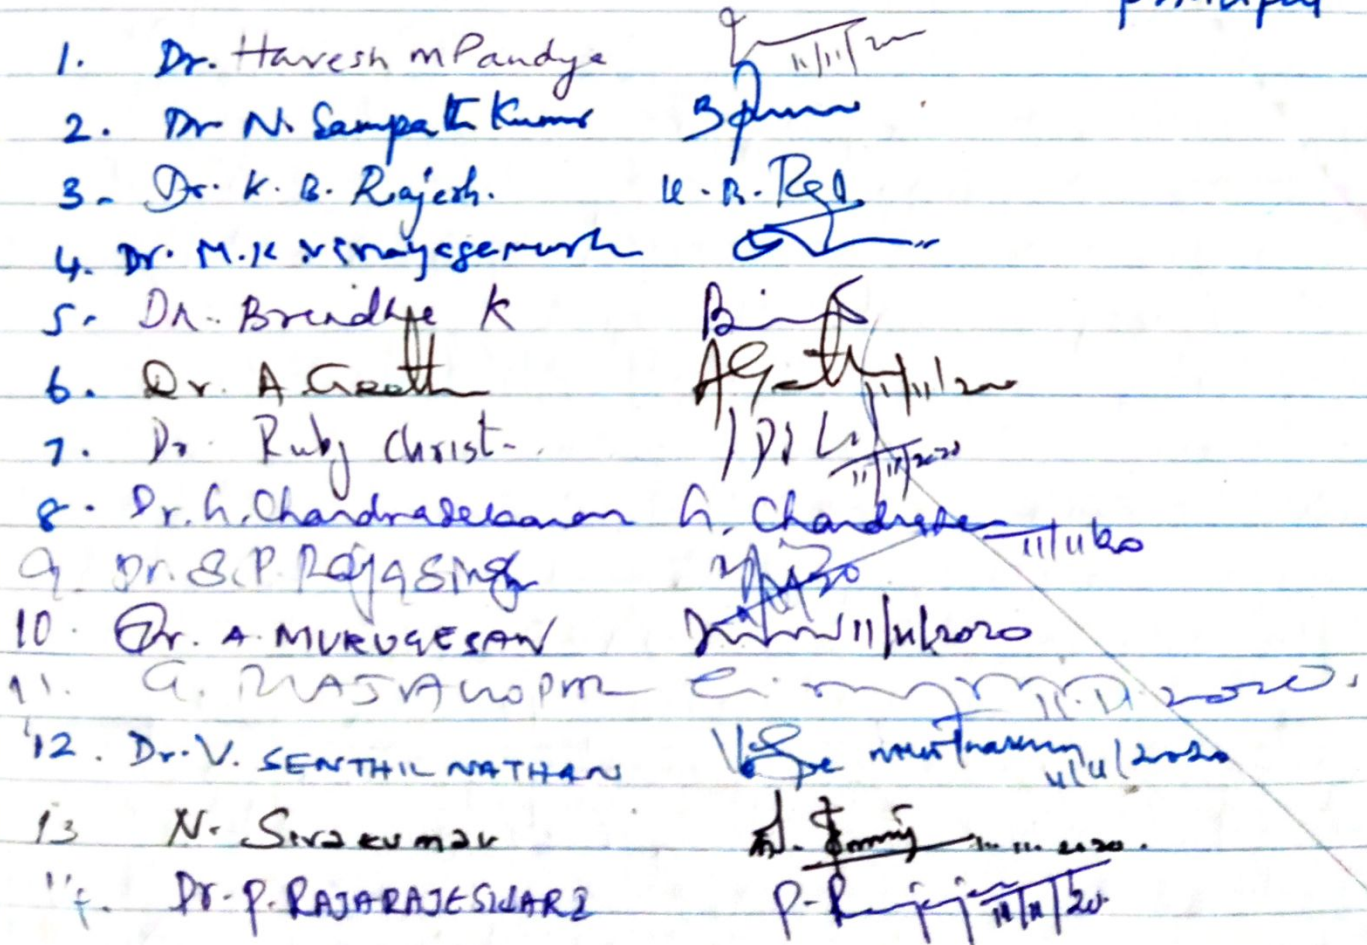 principal
1. Dr. Haresh m Pandya 11/11/20
2. Dr N. Sampath Kumar
3. Dr. K. B. Rajesh. K. B. Raj
4. Dr. M.K Vinayagamurthi
5. Dr. Brindha K
6. Dr. A Geetha AGeetha 11/11/20
7. Dr. Ruby Christ 11/11/2020
8. Dr. G. Chandrasekaran G. Chandrase 11/11/20
9. Dr. S.P. Rajasingh
10. Dr. A. MURUGESAN 11/11/2020
11. G. RAJAGOPAL 11.11.2020.
12. Dr. V. SENTHIL NATHAN 11/11/2020
13 N. Sivakumar 11.2020.
14. Dr. P. RAJARAJESWARI 11/11/20